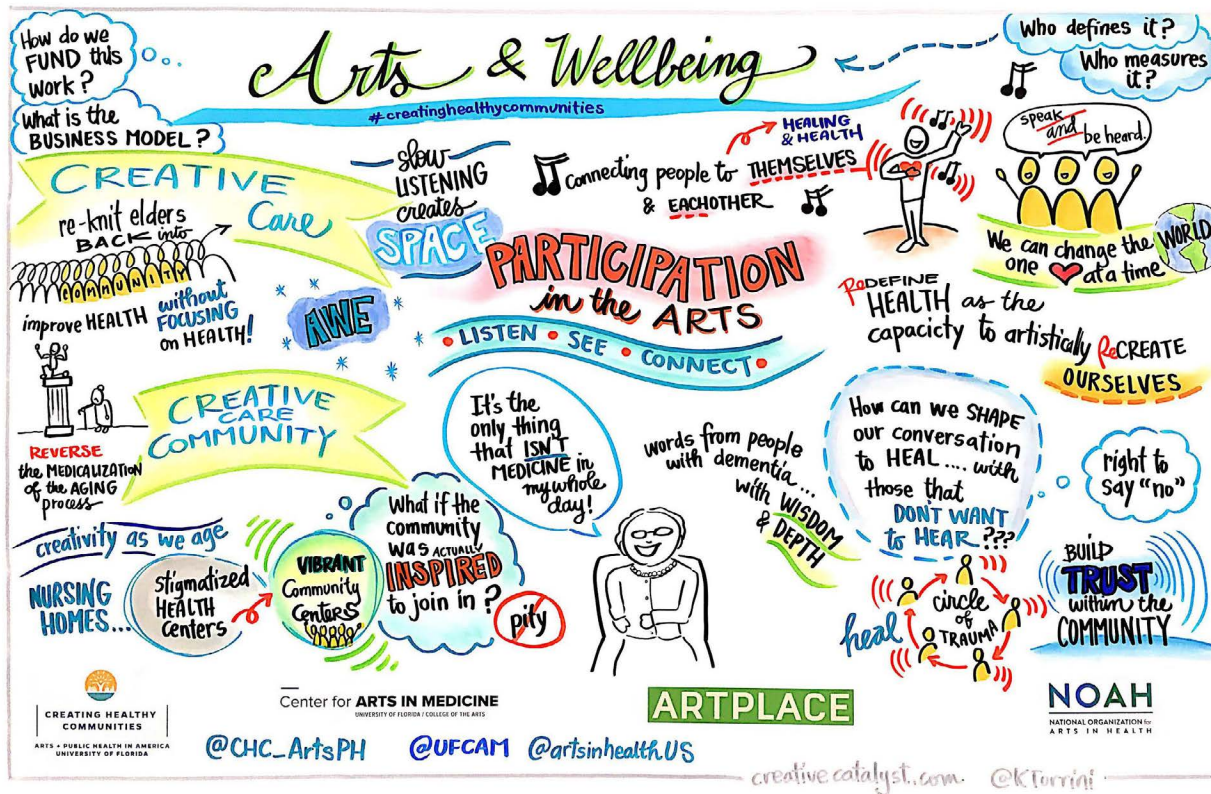 How do we
FUND this
work?
What is the
BUSINESS MODEL?
Arts & Wellbeing
#creatinghealthycommunities
Who defines it?
Who measures
it?
CREATIVE
Care
re-knit elders
BACK into
COMMUNITY
improve HEALTH
without
FOCUSING
on HEALTH!
slow
LISTENING
creates
SPACE
AWE
HEALING
& HEALTH
Connecting people to THEMSELVES
& EACHOTHER
PARTICIPATION
in the ARTS
• LISTEN • SEE • CONNECT •
speak and be heard.
We can change the WORLD
one at a time
ReDEFINE
HEALTH as the
capacicty to artistically ReCREATE
OURSELVES
REVERSE
the MEDICALIZATION
of the AGING
process
CREATIVE
CARE
COMMUNITY
It's the
only thing
that ISN'T
MEDICINE in
my whole
day!
words from people
with dementia...
with WISDOM
& DEPTH
How can we SHAPE
our conversation
to HEAL.... with
those that
DON'T WANT
to HEAR???
right to
say "no"
creativity as we age
NURSING
HOMES...
stigmatized
HEALTH
Centers
VIBRANT
Community
Centers
What if the
community
was ACTUALLY
INSPIRED
to join in?
pity
heal
circle
of
TRAUMA
BUILD
TRUST
within the
COMMUNITY
CREATING HEALTHY
COMMUNITIES
ARTS + PUBLIC HEALTH IN AMERICA
UNIVERSITY OF FLORIDA
Center for ARTS IN MEDICINE
UNIVERSITY OF FLORIDA / COLLEGE OF THE ARTS
ARTPLACE
NOAH
NATIONAL ORGANIZATION for
ARTS IN HEALTH
@CHC_ArtsPH @UFCAM @artsinhealth.US
creativecatalyst.com. @KTorrini